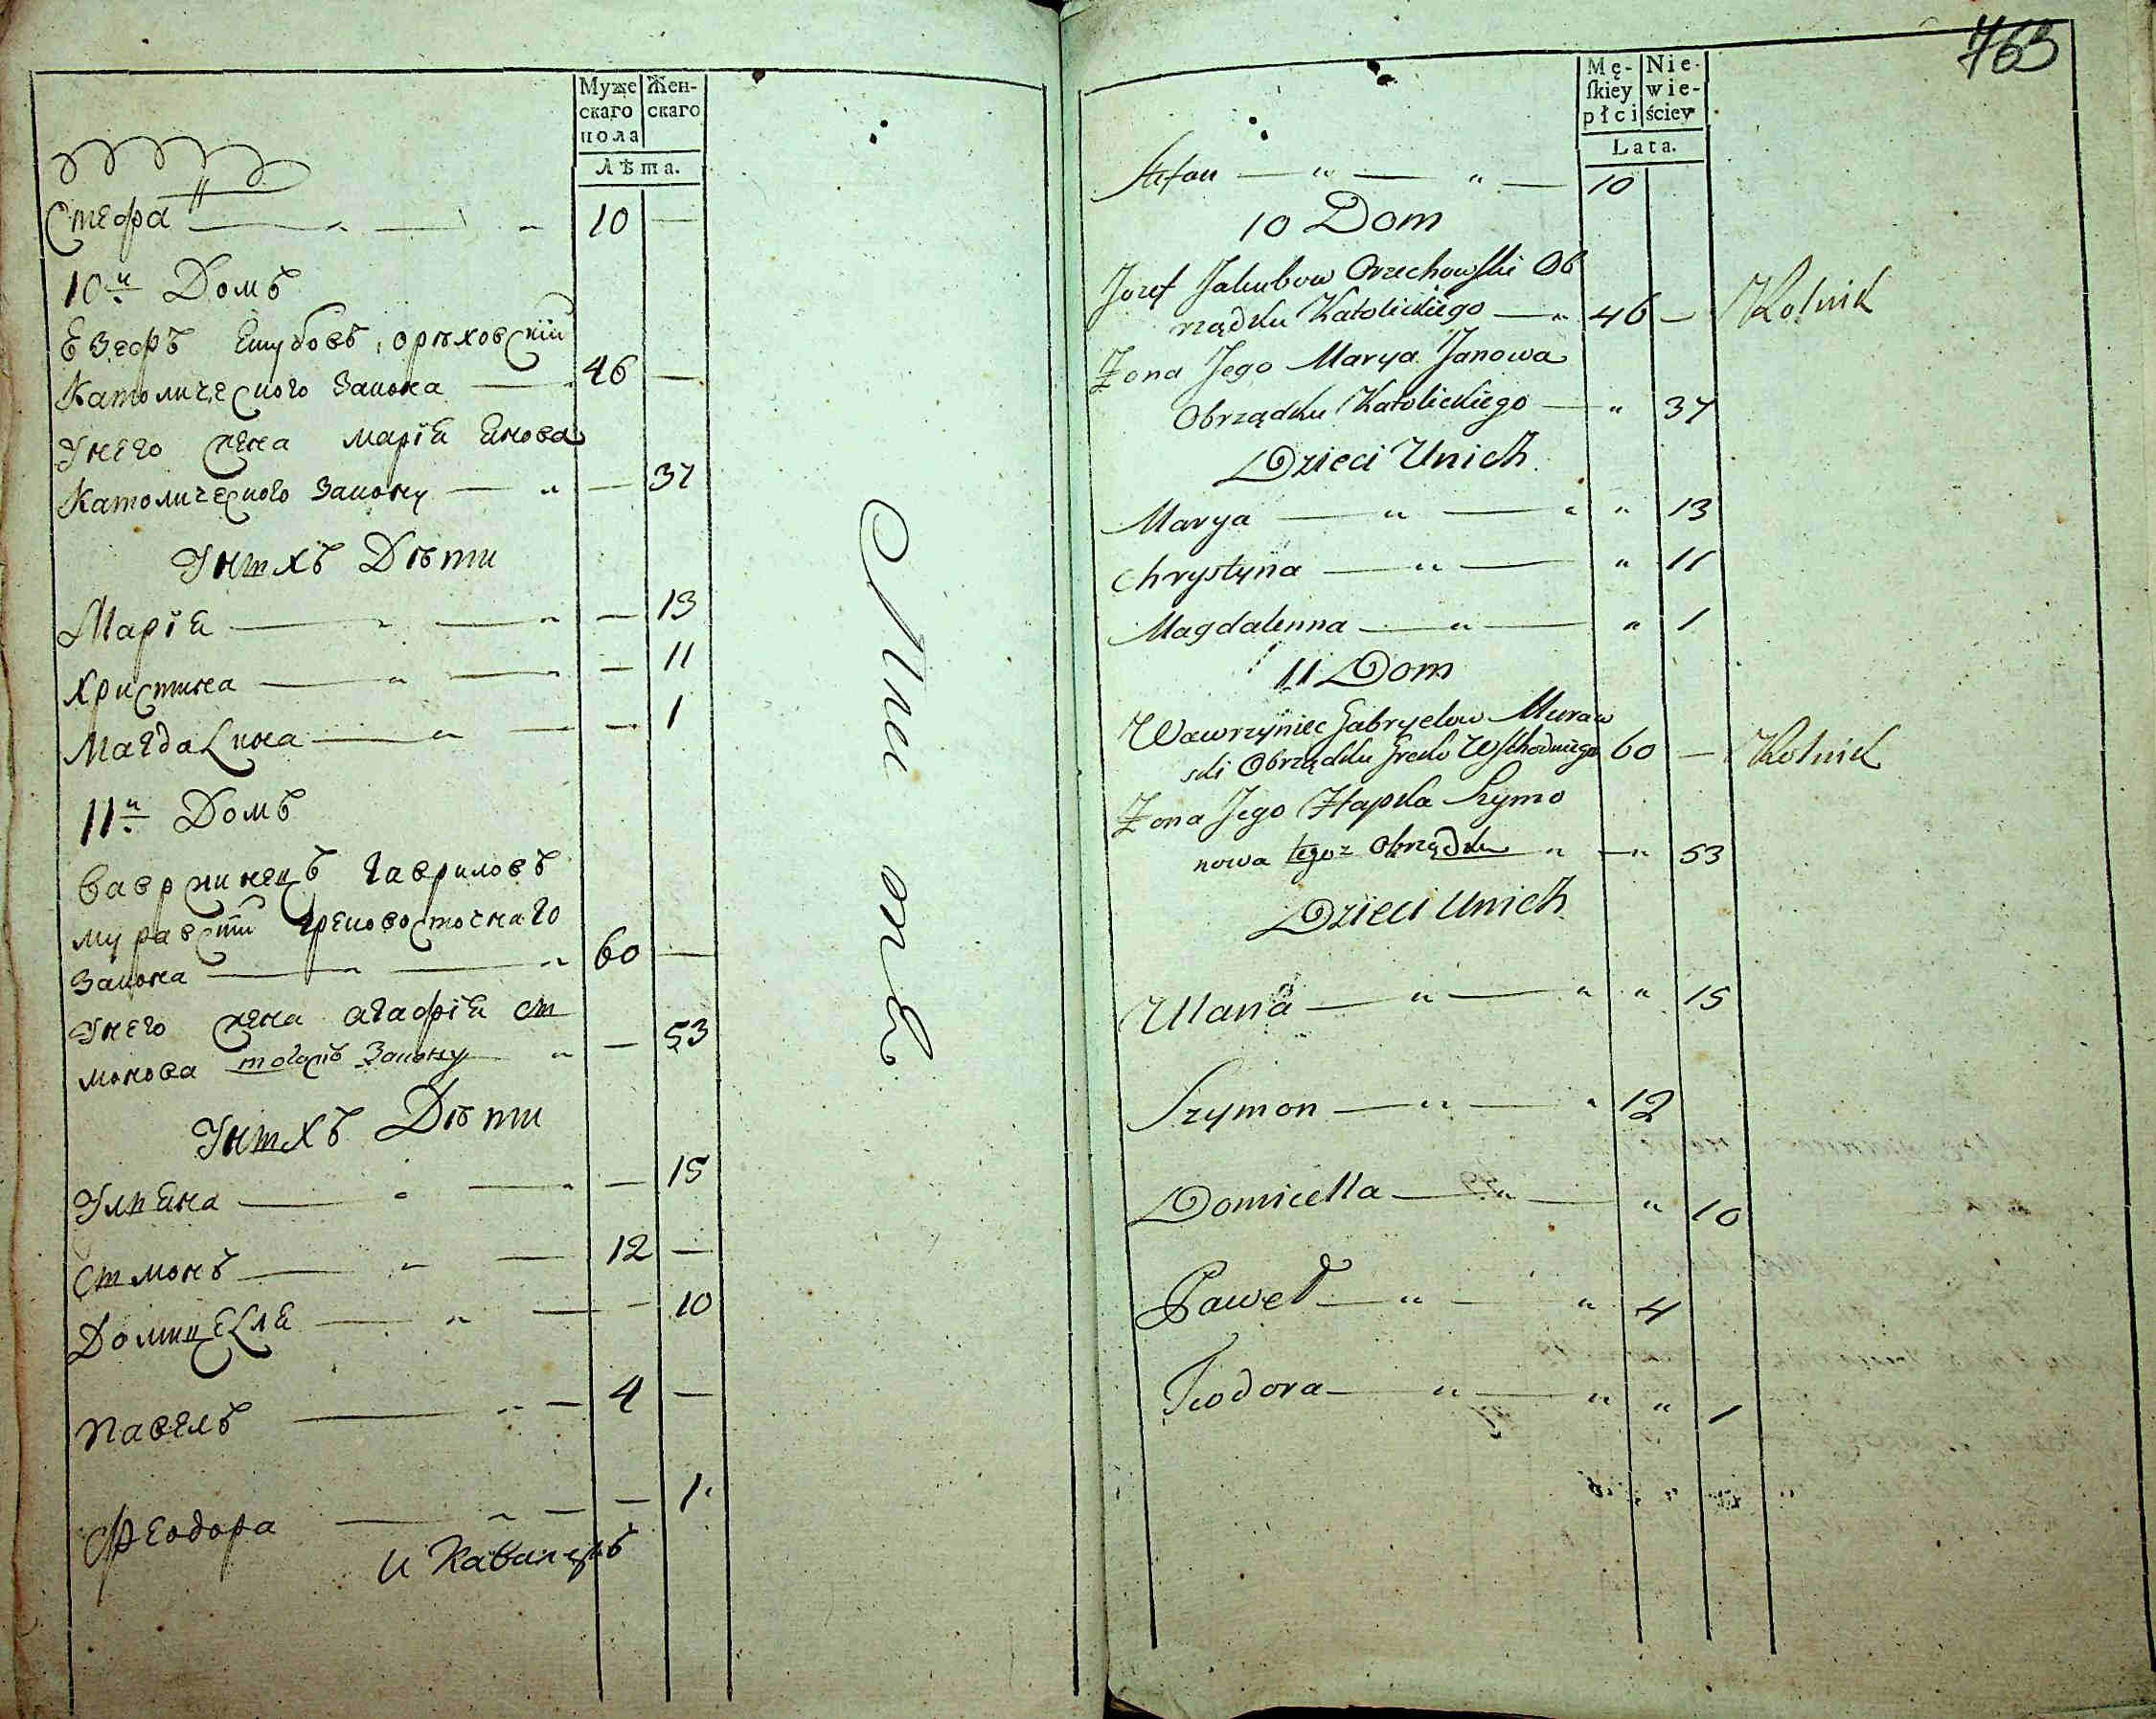 Муже
скаго
пола
Жен-
скаго
Лѣта.
Стефа — „ — „ 10 —
10й Домъ
Езефъ Якубовъ Орѣховскїй
Католического Закона — 46 —
Унего жена Марїя Янова
Католического Закону — „ — 37
Унихъ Дѣти
Марїя — „ — „ — 13
Христина — „ — — 11
Магдалина — „ — — 1
11й Домъ
Вавржинецъ Гавриловъ
Муравскїй Грековосточнаго
Закона — „ — „ 60 —
Унего жена Агафїя Си
монова тогожъ Закону „ — 53
Унихъ Дѣти
Улияна — „ — „ — 15
Симонъ — „ — 12 —
Доминеля — „ — — 10
Павелъ — „ — 4 —
Феодора — „ — — 1
763
Mę-
ſkiey
płci
Nie-
wie-
ściey
Lata.
Stefan — „ — „ — 10
10 Dom
Jozef Jakubow Orzechowski Ob
rządku Katolickiego — „ 46 — Rolnik
Żona Jego Marya Janowa
Obrządku Katolickiego — „ 37
Dzieci Unich
Marya — „ — „ „ 13
Chrystyna — „ — „ 11
Magdalenna — „ — „ 1
11 Dom
Wawrzyniec Gabryelow Muraw
ski Obrządku Greko Wschodniego 60 — Rolnik
Żona Jego Hapka Szymo
nowa tegoż Obrządku „ — „ 53
Dzieci Unich
Ulana — „ — „ „ 15
Szymon — „ — „ 12
Domicella — „ — „ 10
Paweł — „ — „ 4
Teodora — „ — „ „ 1